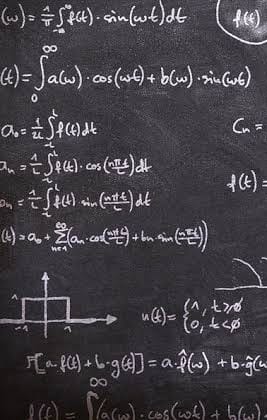 (ω) = 1/π ∫ f(t) · sin(ωt) dt
f(t)
(t) = ∫₀^∞ a(ω) · cos(ωt) + b(ω) · sin(ωt)
a₀ = ∫ f(t) dt
Cₙ =
aₙ = 1/L ∫ f(t) · cos(nπt/L) dt
f(t) =
= 1/L ∫ f(t) · sin(nπt/L) dt
(t) = a₀ + ∑ₙ₌₁^∞ (aₙ · cos(nπt/L) + bₙ · sin(nπt/L))
1
-1 1
u(t) = {1, t>0
0, t<0
F[a · f(t) + b · g(t)] = a · f̂(ω) + b · ĝ(ω
f(t) = ∫^∞ (a(ω) · cos(ωt) + b(ω)